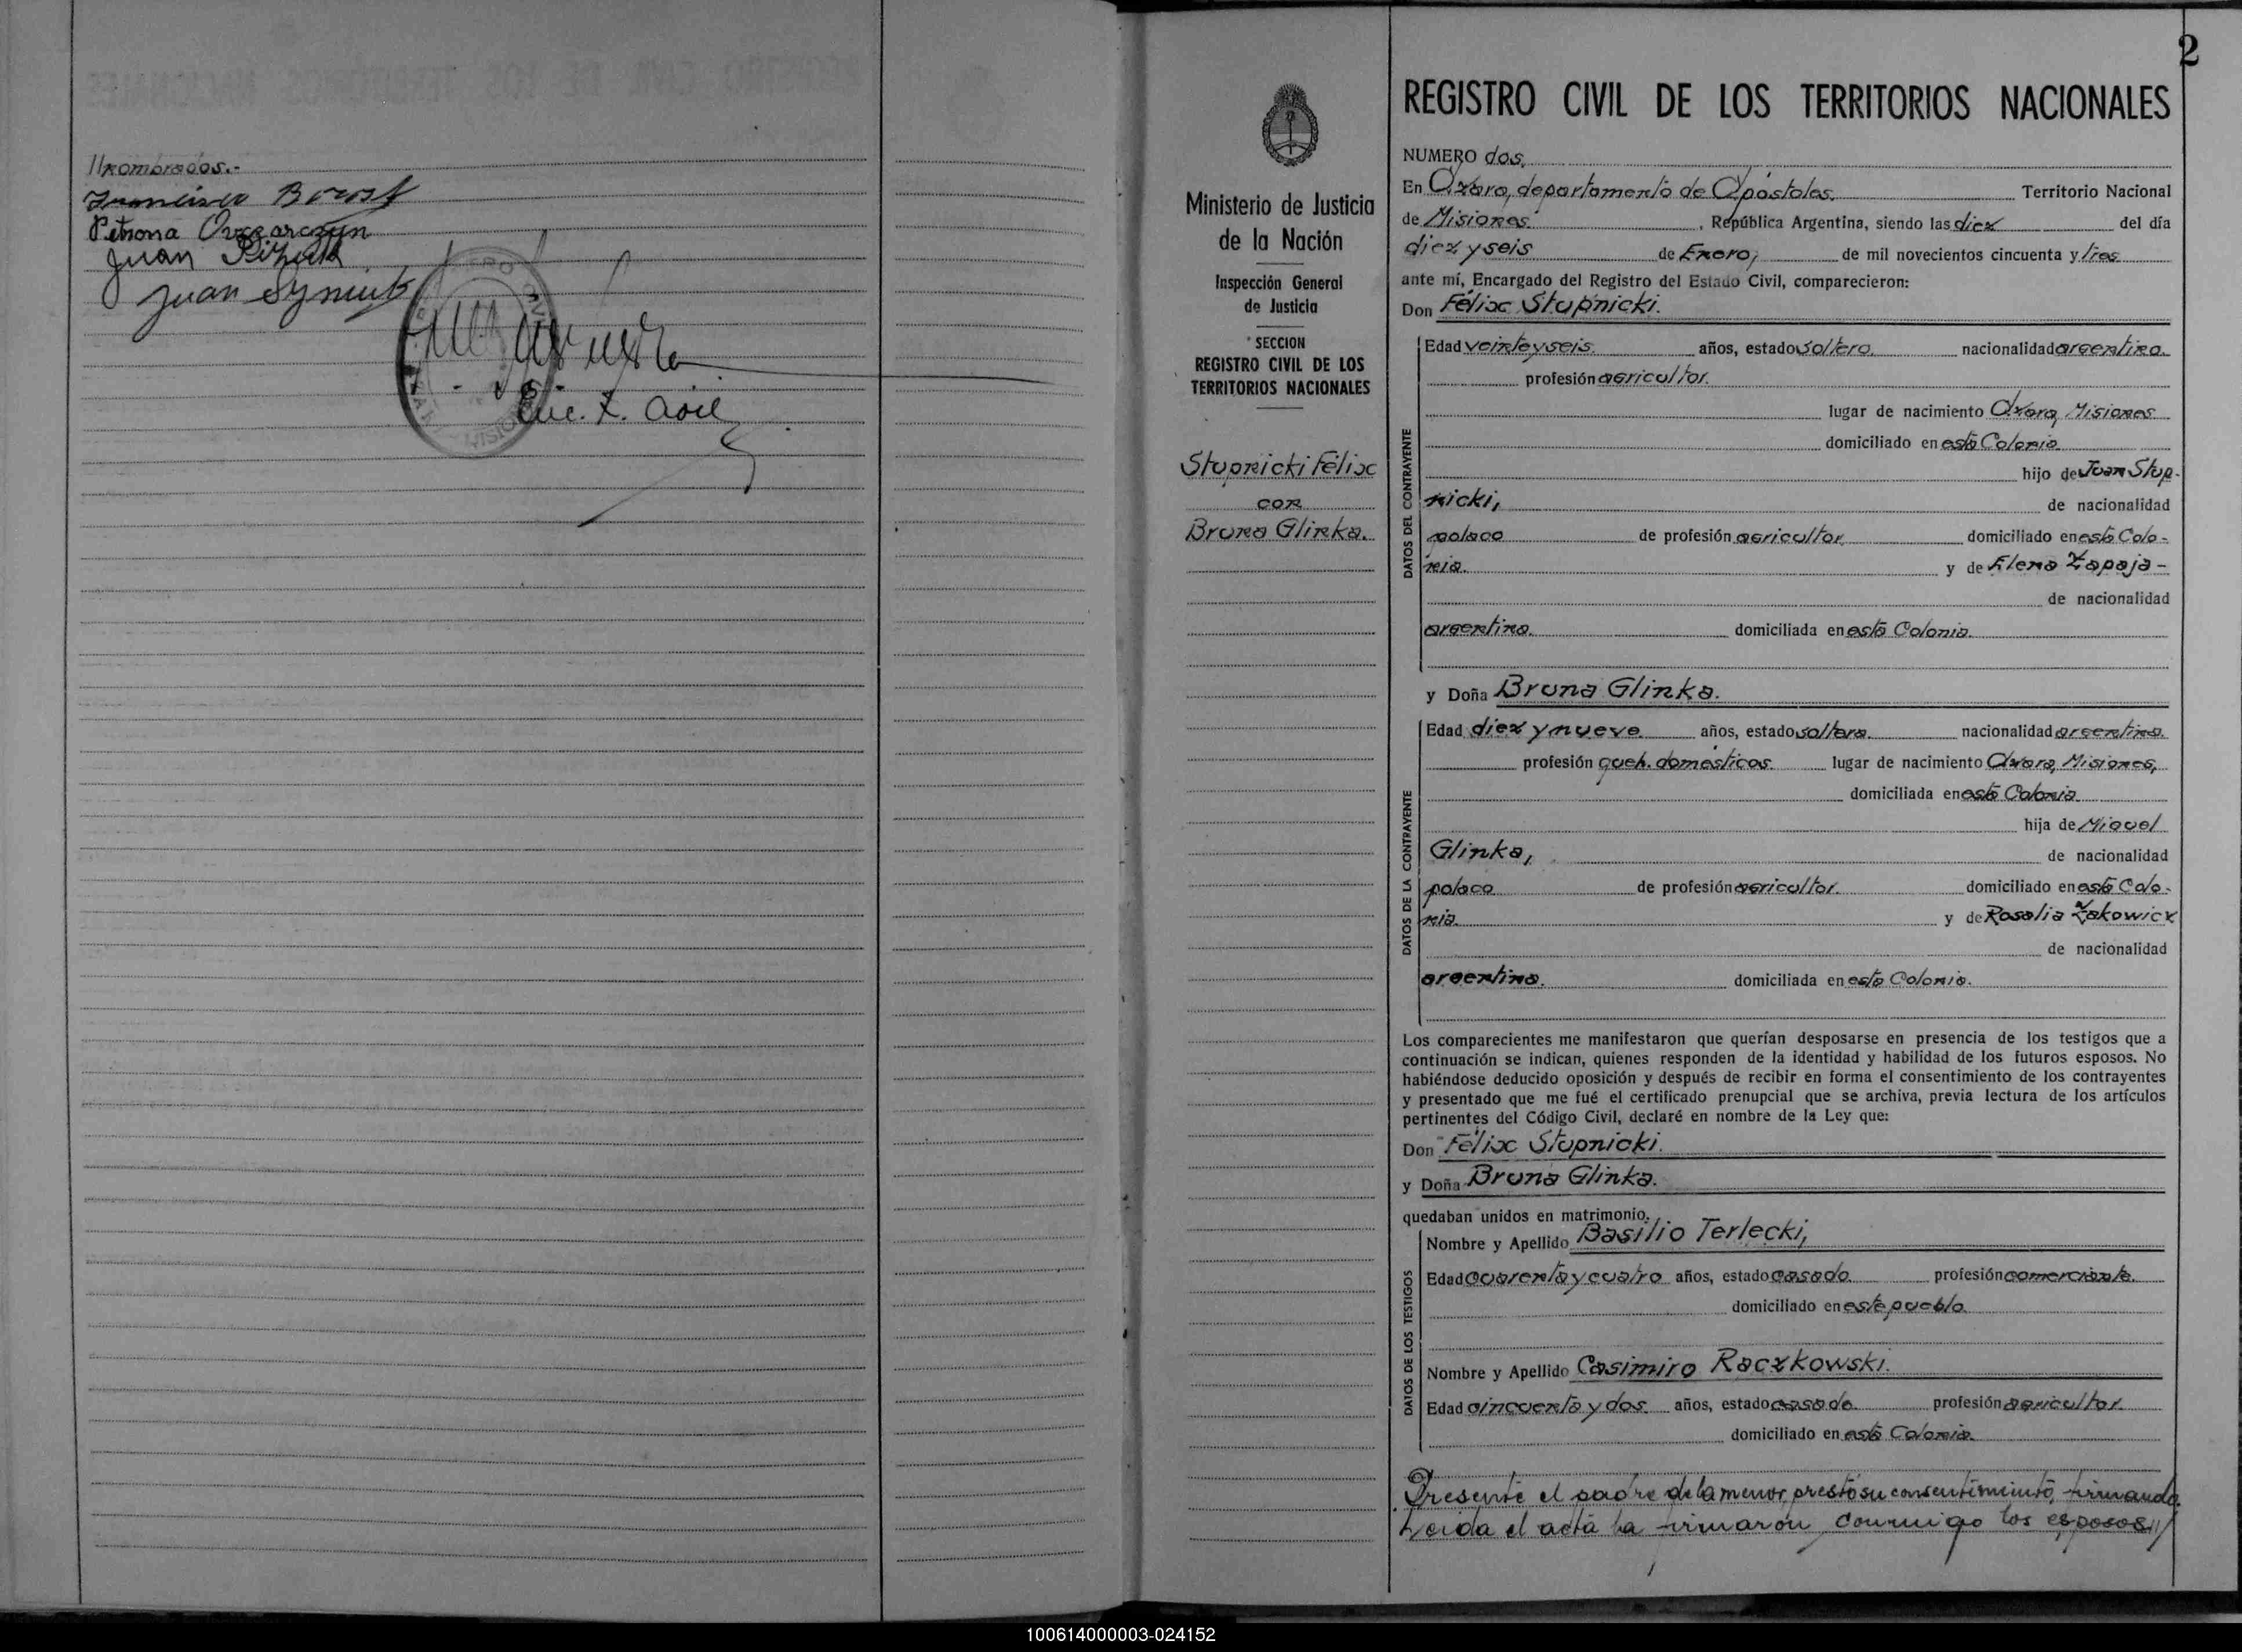 //nombrados.-
Francisco Borost
Petrona Owczarczyn
Juan
Juan Szmut
Enc. R. Civil
2
REGISTRO CIVIL DE LOS TERRITORIOS NACIONALES
Ministerio de Justicia
de la Nación
Inspección General
de Justicia
SECCION
REGISTRO CIVIL DE LOS
TERRITORIOS NACIONALES
Stupnicki Félix
con
Bruna Glinka.
NUMERO dos.
En Azara, departamento de Apóstoles. Territorio Nacional
de Misiones. , República Argentina, siendo las diez del día
diez y seis de Enero, de mil novecientos cincuenta y tres
ante mí, Encargado del Registro del Estado Civil, comparecieron:
Don Félix Stupnicki.
DATOS DEL CONTRAYENTE
Edad veinte y seis. años, estado soltero. nacionalidad argentina.
profesión agricultor.
lugar de nacimiento Azara, Misiones
domiciliado en esta Colonia.
hijo de Juan Stup-
nicki, de nacionalidad
polaco de profesión agricultor domiciliado en esta Colo-
nia. y de Elena Zapaja-
de nacionalidad
argentina. domiciliada en esta Colonia.
y Doña Bruna Glinka.
DATOS DE LA CONTRAYENTE
Edad diez y nueve. años, estado soltera. nacionalidad argentina.
profesión queh. domésticos. lugar de nacimiento Azara, Misiones,
domiciliada en esta Colonia.
hija de Miguel
Glinka, de nacionalidad
polaco de profesión agricultor. domiciliado en esta Colo-
nia. y de Rosalia Zakowicz
de nacionalidad
argentina. domiciliada en esta Colonia.
Los comparecientes me manifestaron que querían desposarse en presencia de los testigos que a
continuación se indican, quienes responden de la identidad y habilidad de los futuros esposos. No
habiéndose deducido oposición y después de recibir en forma el consentimiento de los contrayentes
y presentado que me fué el certificado prenupcial que se archiva, previa lectura de los artículos
pertinentes del Código Civil, declaré en nombre de la Ley que:
Don Félix Stupnicki.
y Doña Bruna Glinka.
quedaban unidos en matrimonio.
DATOS DE LOS TESTIGOS
Nombre y Apellido Basilio Terlecki,
Edad cuarenta y cuatro años, estado casado. profesión comerciante.
domiciliado en este pueblo.
Nombre y Apellido Casimiro Raczkowski.
Edad cincuenta y dos. años, estado casado. profesión agricultor.
domiciliado en esta Colonia.
Presente el padre de la menor, prestó su consentimiento, firmando.
Leida el acta la firmaron conmigo los esposos//
100614000003-024152